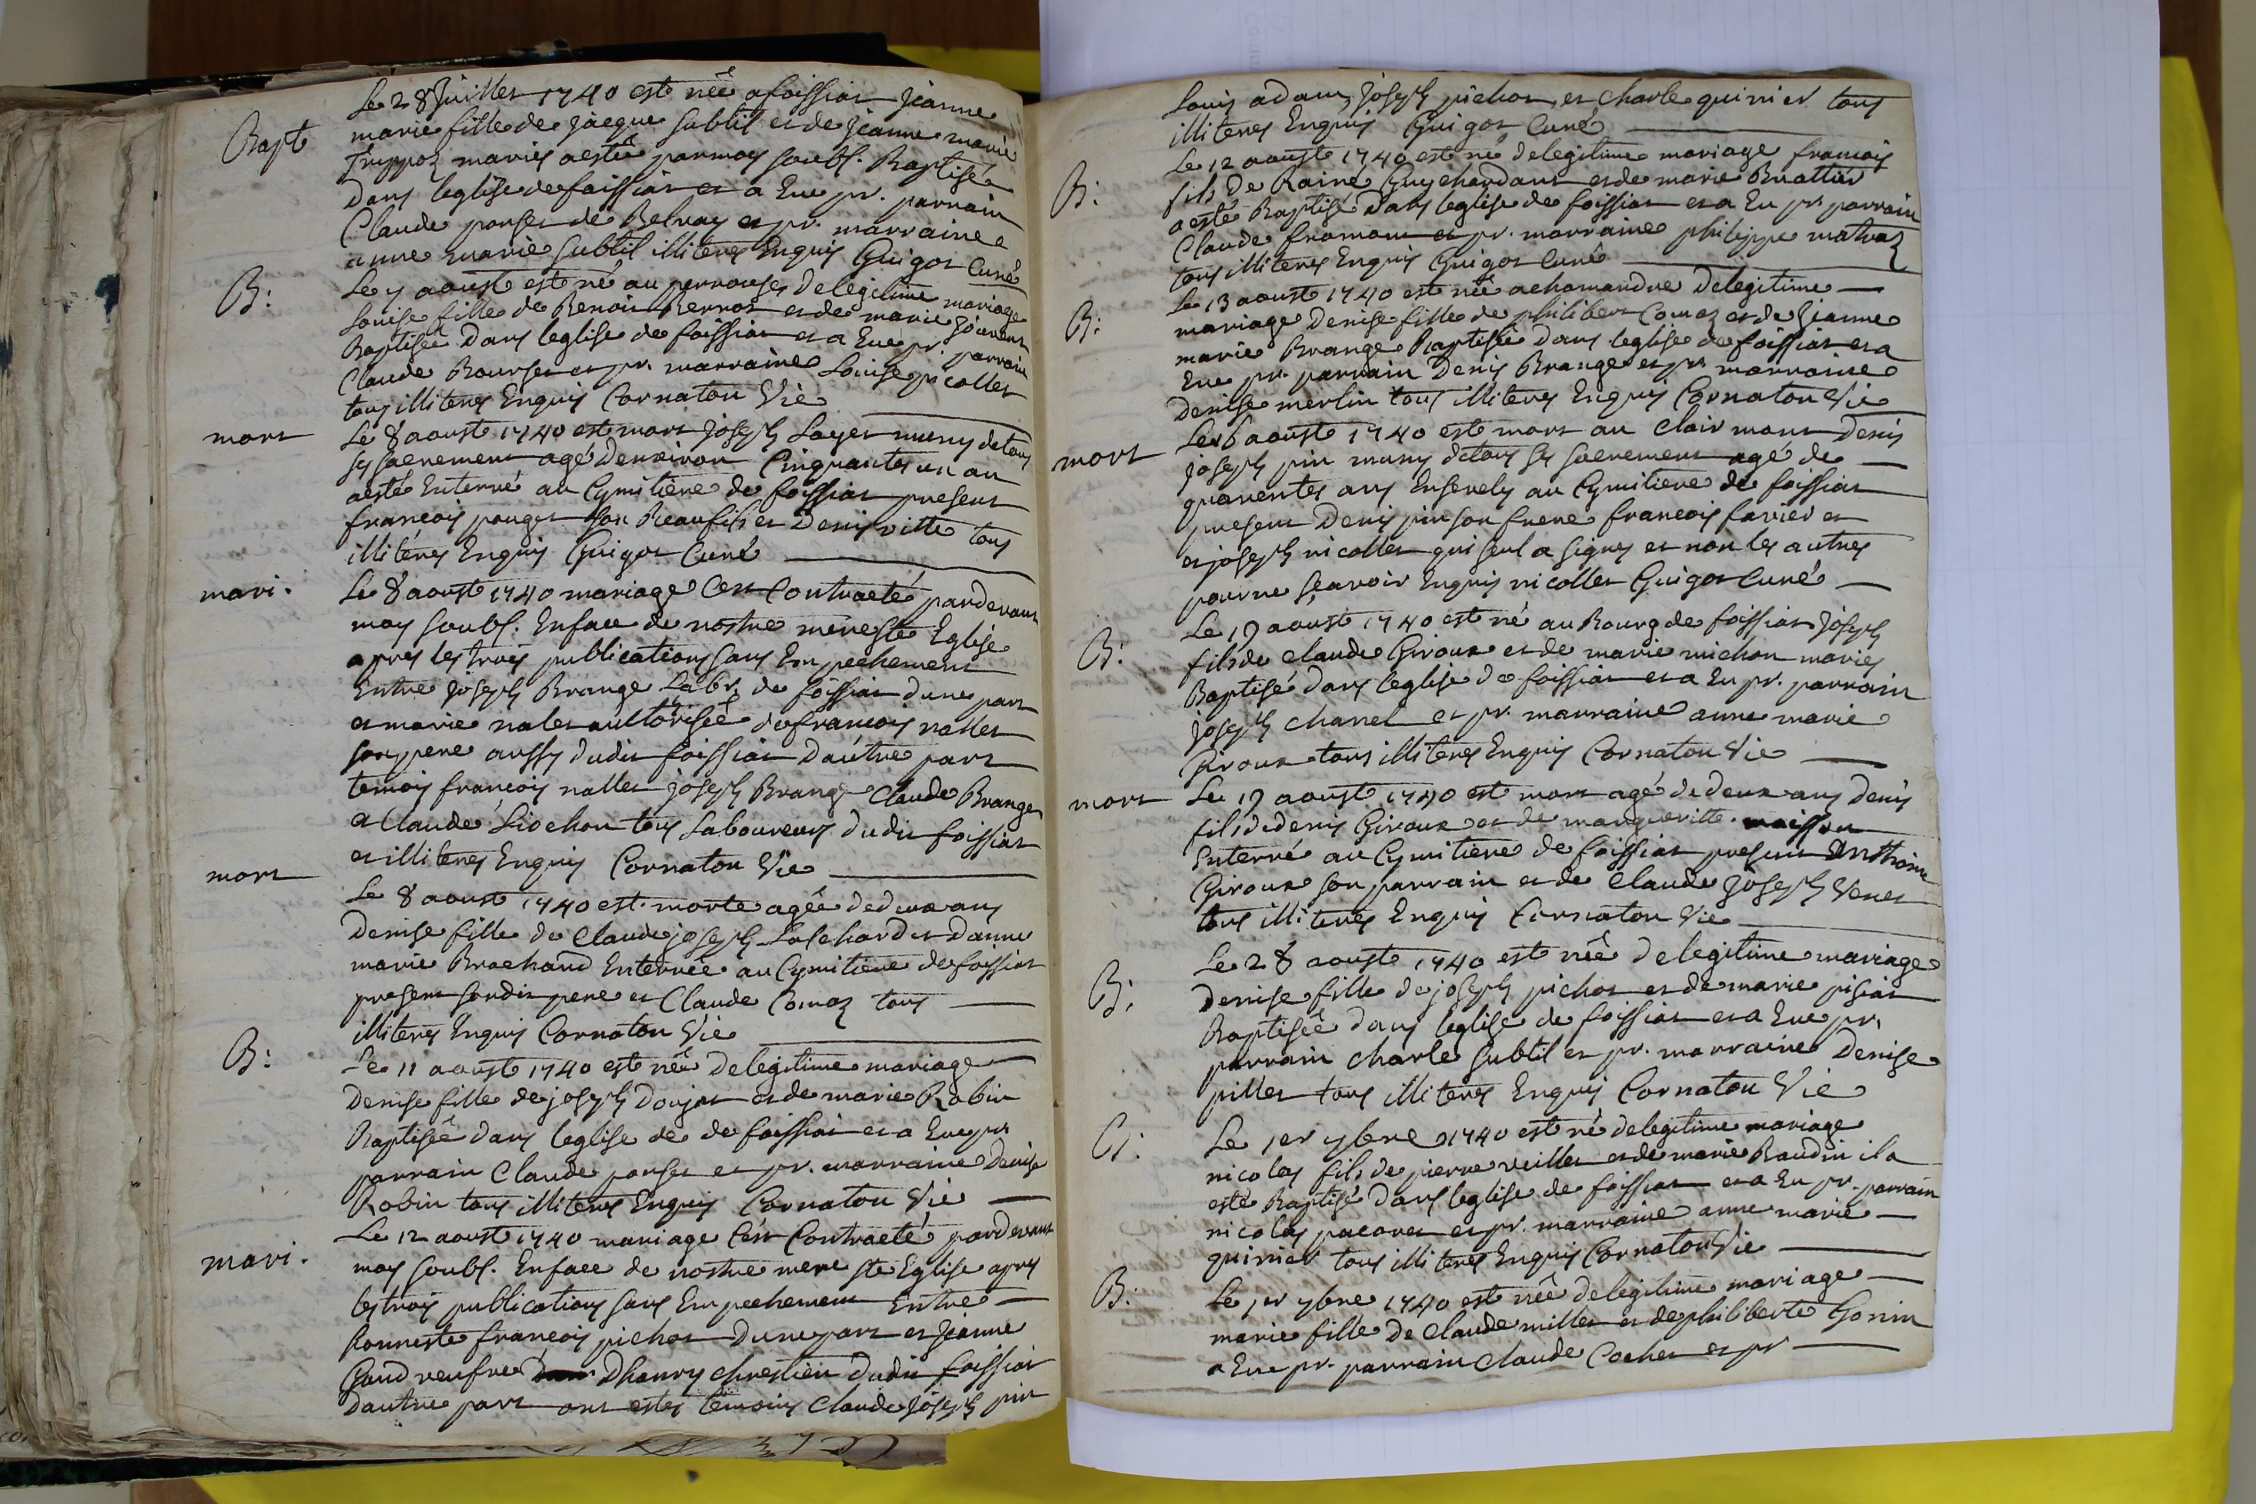 Bapt
Le 28 Juillet 1740 est née a foissiat Jeanne
marie fille de Jacque subtil et de Jeanne marie
mariés a estée par moy soubs. Baptisée
dans leglise de foissiat et a Eue pr. parrain
Claude ponset de Belvay et pr. marraine
anne marie subtil illiterés Enquis Guigot Curé
B:
Le 7 aoust est né au perrouses de legitime mariage
Louise fille de Benoit Bernot et de marie Jouvent
Baptisée dans leglise de foissiat et a Eue pr. parrain
Claude Bourset et pr. marraine Louise picollet
tous illiterés Enquis Cornaton Vic
mort
Le 8 aoust 1740 est mort Joseph Layet muny de tous
ses sacrement agé denviron Cinquantes un an
a esté Enterré au Cymitiere de foissiat present
francois ponget son Beaufils et Denis vitte tous
illiterés Enquis Guigot Curé
mari.
Le 8 aoust 1740 mariage Cest Contracté pardevant
moy soubs. Enface de nostre mere ste Eglise
apres les trois publications sans Empechement
Entre Joseph Brange Labr. de foissiat dune part
et marie nalet authorisée de francois nallet
son pere aussy dudit foissiat dautre part
temois francois nallet Joseph Brange Claude Brange
et Claude Siochon tous Laboureurs dudit foissiat
et illiterés Enquis Cornaton Vic
mort
Le 8 aoust 1740 est morte agée de deux ans
Denise fille de Claude joseph Lalechardet Danne
marie Brochand Enterrée au Cymitiere de foissiat
present sondit pere et Claude Comaz tous
illiterés Enquis Cornaton Vic
B:
Le 11 aoust 1740 est née de legitime mariage
Denise fille de joseph Donjat et de marie Robin
Baptisée dans leglise de de foissiat et a Eue pr.
parrain Claude ponset et pr. marraine Denise
Robin tous illiterés Enquis Cornaton Vic
mari.
Le 12 aoust 1740 mariage Cest Contracté pardevant
moy soubs. Enface de nostre mere ste Eglise apres
les trois publications sans Empechement Entre
honneste francois pichot Dune part et Jeanne
Gaud veufve Dhanry chrestien dudit foissiat
dautre part ont estés temoins Claude Joseph pin
Louis adam, Joseph pichot, et Charle quinier tous
illiterés Enquis Guigot Curé
B:
Le 12 aoust 1740 est né de legitime mariage francois
fils De Rainé Guychardant et de marie Buattier
a esté Baptisé dans leglise de foissiat et a Eu pr. parrain
Claude fromont et pr. marraine philippe matraz
tous illiterés Enquis Guigot Curé
B:
Le 13 aoust 1740 est née a chamandre De legitime
mariage Denise fille de philibert Comaz et de Jeanne
marie Brange Baptisée dans leglise de foissiat et a
Eue pr. parrain Denis Brange et pr. marraine
Denise merlin tous illiterés Enquis Cornaton Vic
mort
Le 16 aoust 1740 est mort au Clair mont Denis
joseph pin muny de tous ses sacrement agé de
quarentes ans Ensevely au Cymitiere de foissiat
present Denis pin son frere francois favier et
et joseph nicollet qui seul a signes et non les autres
pour ne sçavoir Enquis nicollet Guigot Curé
B:
Le 19 aoust 1740 est né au Bourg de foissiat Joseph
fils de Claude Giroux et de marie michon mariés
Baptisé dans leglise de foissiat et a Eu pr. parrain
joseph chanel et pr. marraine anne marie
Giroux tous illiterés Enquis Cornaton Vic
mort
Le 19 aoust 1740 est mort agé de deux ans Denis
fils de denis Giroux et de marguerite maisson
Enterré au Cymitiere de foissiat present Anthoine
Giroux son parrain et de Claude Joseph Venet
tous illiterés Enquis Cornaton Vic
B:
Le 28 aoust 1740 est née de legitime mariage
Denise fille de joseph pichot et de marie pisiat
Baptisée dans leglise de foissiat et a Eue pr.
parrain Charle subtil et pr. marraine Denise
pillet tous illiterés Enquis Cornaton Vic
B:
Le 1er 7bre 1740 est né de legitime mariage
nicolas fils de pierre veillet et de marie Baudin il a
esté Baptisé dans leglise de foissiat et a Eu pr. parrain
nicolas pacoret et pr. marraine anne marie
quinier tous illiterés Enquis Cornaton Vic
B:
Le 1er 7bre 1740 est née de legitime mariage
marie fille de Claude millet et de philiberte Gonin
a Eue pr. parrain Claude Cochet et pr